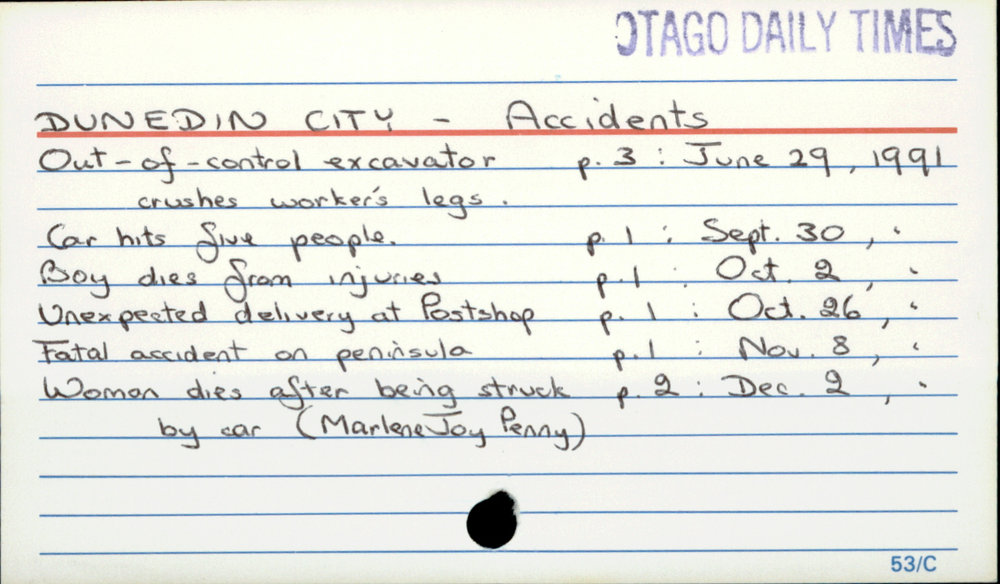 OTAGO DAILY TIMES
DUNEDIN CITY - Accidents
Out-of-control excavator p. 3 : June 29, 1991
crushes worker's legs.
Car hits five people. p. 1 : Sept. 30, "
Boy dies from injuries p. 1 : Oct. 2, "
Unexpected delivery at Postshop p. 1 : Oct. 26, "
Fatal accident on peninsula p. 1 : Nov. 8, "
Woman dies after being struck p. 2 : Dec. 2, "
by car (Marlene Joy Penny)
53/C